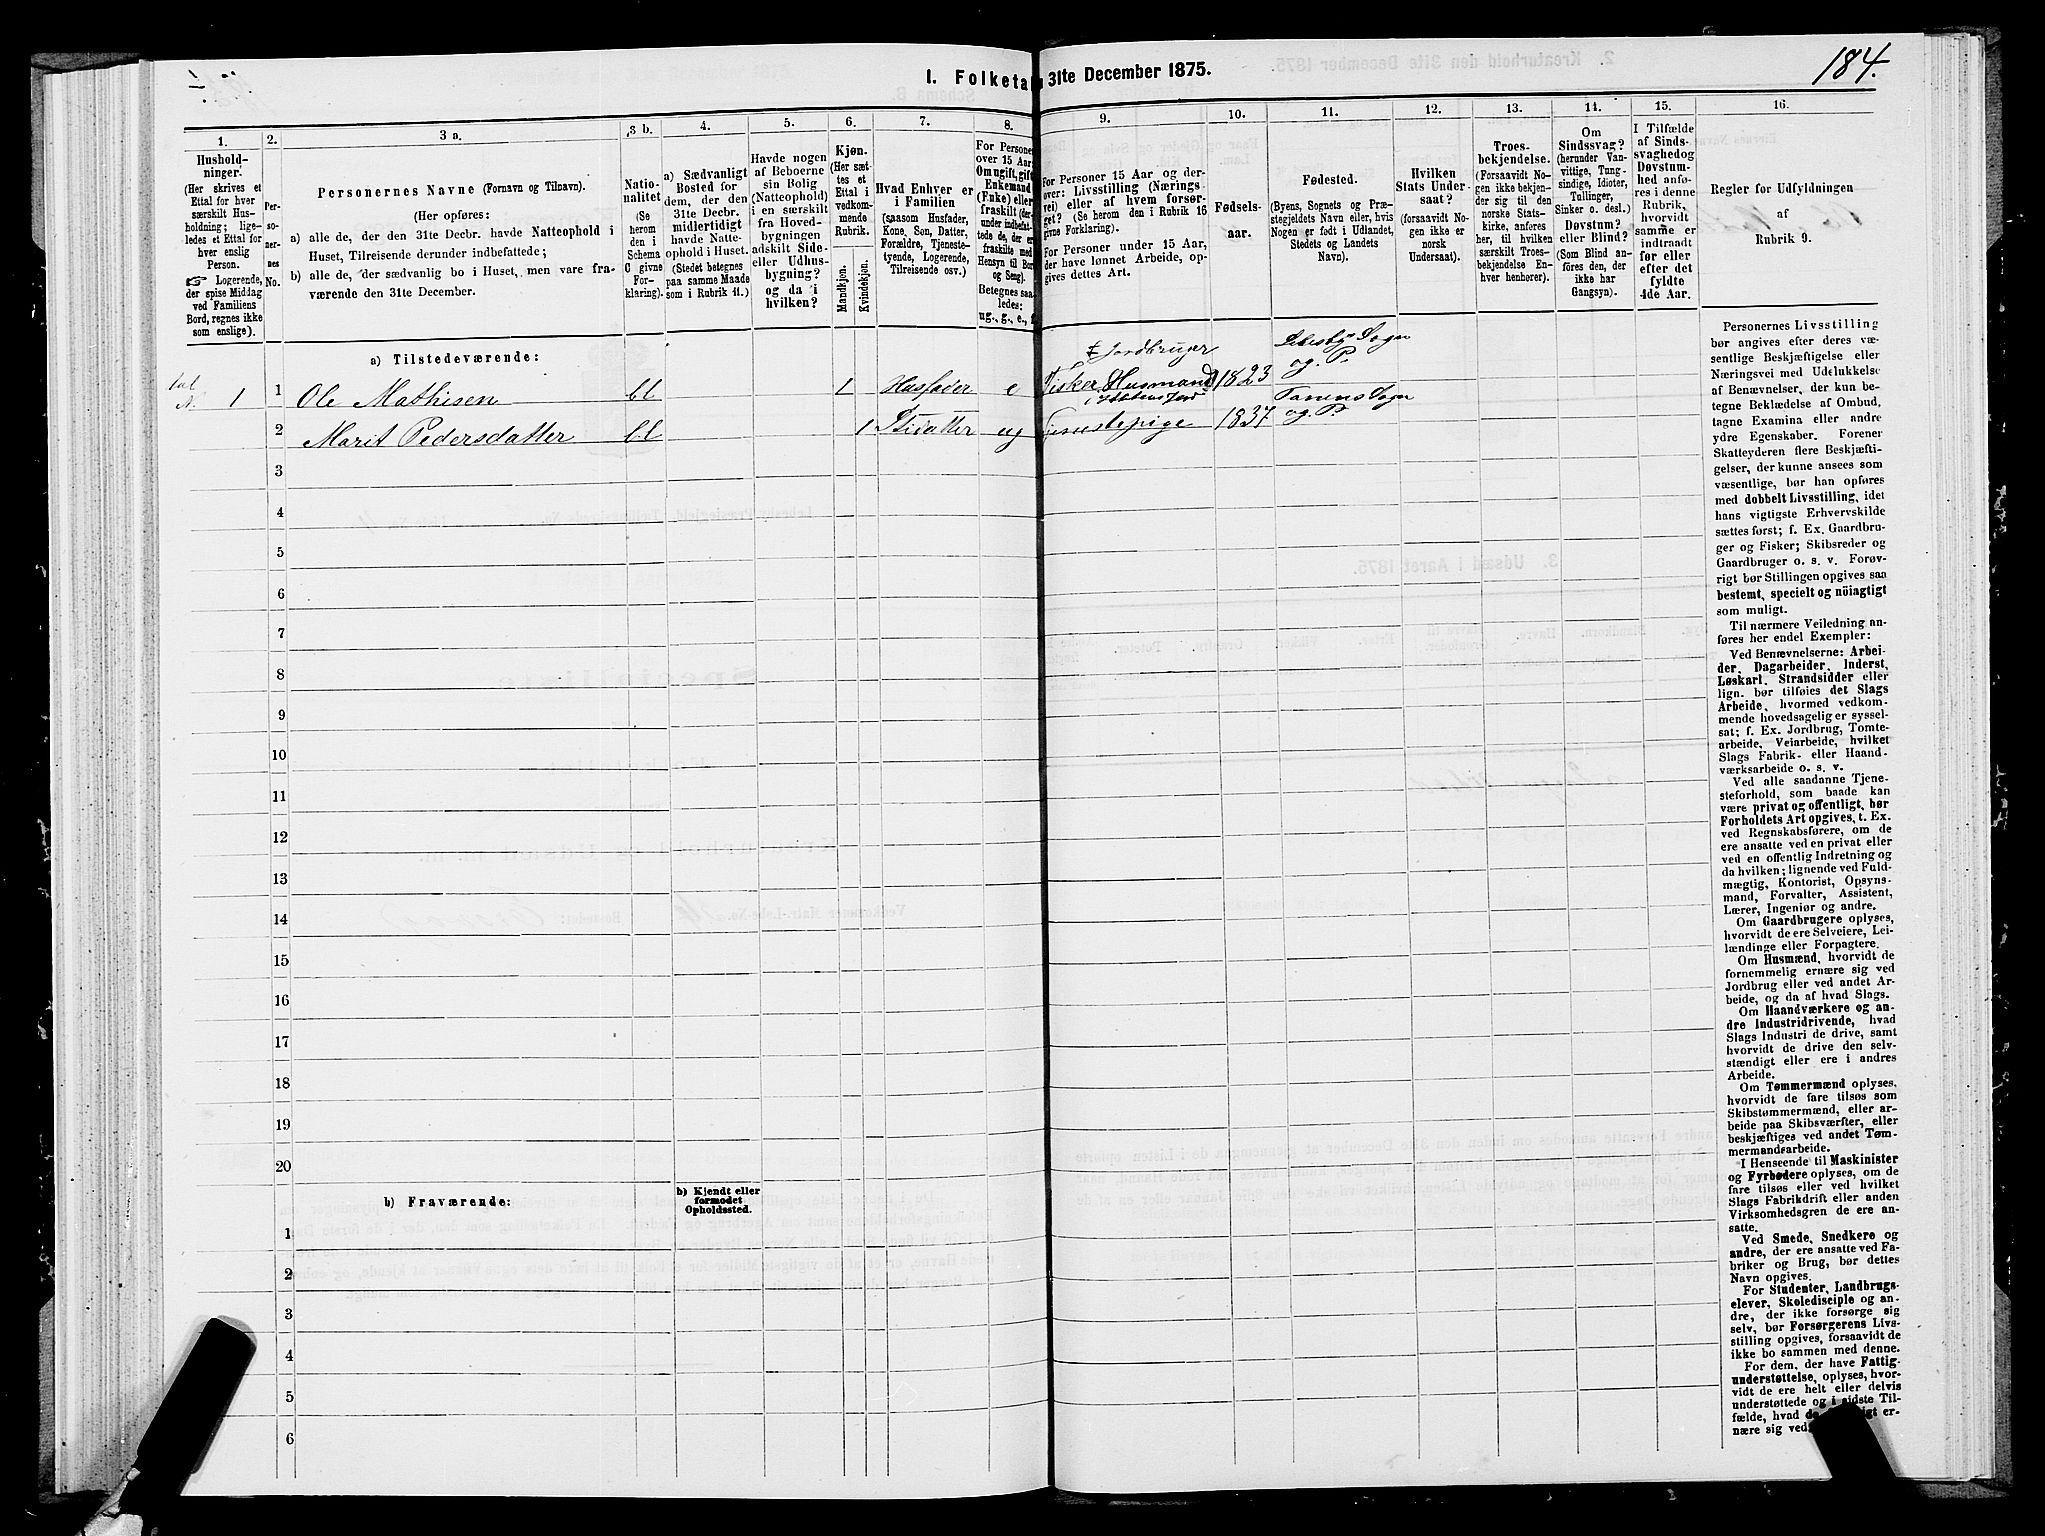 184.
I. Folketa 31te December 1875.
1. 2. 3 a. 3 b. 4. 5. 6. 7. 8. 9. 10. 11. 12. 13. 14. 15. 16.
Hushold-
ninger.
(Her skrives et
Ettal for hver
særskilt Hus-
holdning; lige-
ledes et Ettal for
hver enslig
Person.
☞ Logerende,
der spise Middag
ved Familiens
Bord, regnes ikke
som enslige).
Per-
so-
ner-
nes
No.
Personernes Navne (Fornavn og Tilnavn).
(Her opføres:
a) alle de, der den 31te Decbr. havde Natteophold i
Huset, Tilreisende derunder indbefattede;
b) alle de, der sædvanlig bo i Huset, men vare fra-
værende den 31te December.
Natio-
nalitet
(Se
herom
den i
Schema
C givne
For-
klaring).
a) Sædvanligt
Bosted for
dem, der den
31te Decbr.
midlertidigt
havde Natte-
ophold i Huset.
(Stedet betegnes
paa samme Maade
som i Rubrik 11.)
Havde nogen
af Beboerne
sin Bolig
(Natteophold)
i en særskilt
fra Hoved-
bygningen
adskilt Side-
eller Udhus-
bygning?
og da i
hvilken?
Kjøn.
(Her sæt-
tes et
Ettal i
vedkom-
mende
Rubrik.
Mandkjøn.
Kvindekjøn.
Hvad Enhver er
i Familien
(saasom Husfader,
Kone, Søn, Datter,
Forældre, Tjeneste-
tyende, Logerende,
Tilreisende osv.)
For Personer
over 15 Aar:
Om ugift, gift,
Enkemand
(Enke) eller
fraskilt (der-
under indbefat-
tede de, der er
fraskilte med
Hensyn til Bord
og Seng).
Betegnes saa-
ledes:
ug., g., e., f.
For Personer 15 Aar og der-
over: Livsstilling (Nærings
vei) eller af hvem forsør-
get? (Se herom den i Rubrik 16
givne Forklaring).
For Personer under 15 Aar,
der have lønnet Arbeide, op-
gives dettes Art.
Fødsels-
aar.
Fødested.
(Byens, Sognets og Præ-
stegjeldets Navn eller, hvis
Nogen er født i Udlandet,
Stedets og Landets
Navn).
Hvilken
Stats Under-
saat?
(forsaavidt No-
gen ikke er
norsk
Undersaat).
Troes-
bekjendelse.
(Forsaavidt No-
gen ikke bekjen-
der sig til den
norske Stats-
kirke, anføres
her, til hvilken
særskilt Troes-
bekjendelse En-
hver henhører).
Om
Sindssvag?
(herunder Van-
vittige, Tung-
sindige, Idioter,
Tullinger,
Sinker o. desl.)
Døvstum?
eller Blind?
(Som Blind an-
føres den, der
ikke har
Gangsyn).
I Tilfælde
af Sinds-
svaghed og
Døvstum-
hed anfø-
res i denne
Rubrik,
hvorvidt
samme er
indtraadt
før eller
efter det
fyldte
4de Aar.
Regler for Udfyldningen
af
Rubrik 9.
a) Tilstedeværende:
Jordbruger Lebesby Sogn
og P.
1 1 Ole Mathisen bl 1 Husfader e Fisker, Husmand 1823
Tanens Sogn
2 Marit Pedersdatter bl 1 ug Tjenestepige 1837 og P.
3
4
5
6
7
8
9
10
11
12
13
14
15
16
17
18
19
20
b) Fraværende:
b) Kjendt eller
formodet
Opholdssted.
1
2
3
4
5
6
Personernes Livsstilling
bør angives efter deres væ-
sentlige Beskjæftigelse eller
Næringsvei med Udelukkelse
af Benævnelser, der kun be-
tegne Beklædelse af Ombud,
tagne Examina eller andre
ydre Egenskaber. Forener
Skatteyderen flere Beskjæfti-
gelser, der kunne ansees som
væsentlige, bør han opføres
med dobbelt Livsstilling, idet
hans vigtigste Erhvervskilde
sættes først; f. Ex. Gaardbru-
ger og Fisker; Skibsreder og
Gaardbruger o. s. v. Forøv-
rigt bør Stillingen opgives saa
bestemt, specielt og nöiagtigt
som muligt.
Til nærmere Veiledning an-
føres her endel Exempler:
Ved Benævnelserne: Arbei-
der, Dagarbeider, Inderst,
Løskarl, Strandsidder eller
lign. bør tilføies det Slags
Arbeide, hvormed vedkom-
mende hovedsagelig er syssel-
sat; f. Ex. Jordbrug, Tomte-
arbeide, Veiarbeide, hvilket
Slags Fabrik- eller Haand-
værksarbeide o. s. v.
Ved alle saadanne Tjene-
steforhold, som baade kan
være privat og offentligt, bør
Forholdets Art opgives, t. Ex.
ved Regnskabsførere, om de
ere ansatte ved en privat eller
ved en offentlig Indretning og
da hvilken; lignende ved Fuld-
mægtig, Kontorist, Opsyns-
mand, Forvalter, Assistent,
Lærer, Ingeniør og andre.
Om Gaardbrugere oplyses,
hvorvidt de ere Selveiere, Lei-
lændinge eller Forpagtere.
Om Husmænd, hvorvidt de
fornemmelig ernære sig ved
Jordbrug eller ved andet Ar-
beide, og da af hvad Slags.
Om Haandværkere og an-
dre Industridrivende, hvad
Slags Industri de drive, samt
hvorvidt de drive den selv-
stændigt eller ere i andres
Arbeide.
Om Tømmermænd oplyses,
hvorvidt de fare tilsøs som
Skibstømmermænd, eller ar-
beide paa Skibsværfter, eller
beskjæftiges ved andet Tøm-
mermandsarbeide.
I Henseende til Maskinister
og Fyrbødere oplyses, om de
fare tilsøs eller ved hvilket
Slags Fabrikdrift eller anden
Virksomhedsgren de ere an-
satte.
Ved Smede, Snedkere og
andre, der ere ansatte ved Fa-
briker og Brug, bør dettes
Navn opgives.
For Studenter, Landbrugs-
elever, Skoledisciple og an-
dre, der ikke forsørge sig
selv, bør Forsørgerens Livs-
stilling opgives, forsaavidt de
ikke bo sammen med denne.
For dem, der have Fattig-
understøttelse, oplyses, hvor-
vidt de ere helt eller delvis
understøttede og i sidste Til-
fælde, hvad er-
nære sig ved